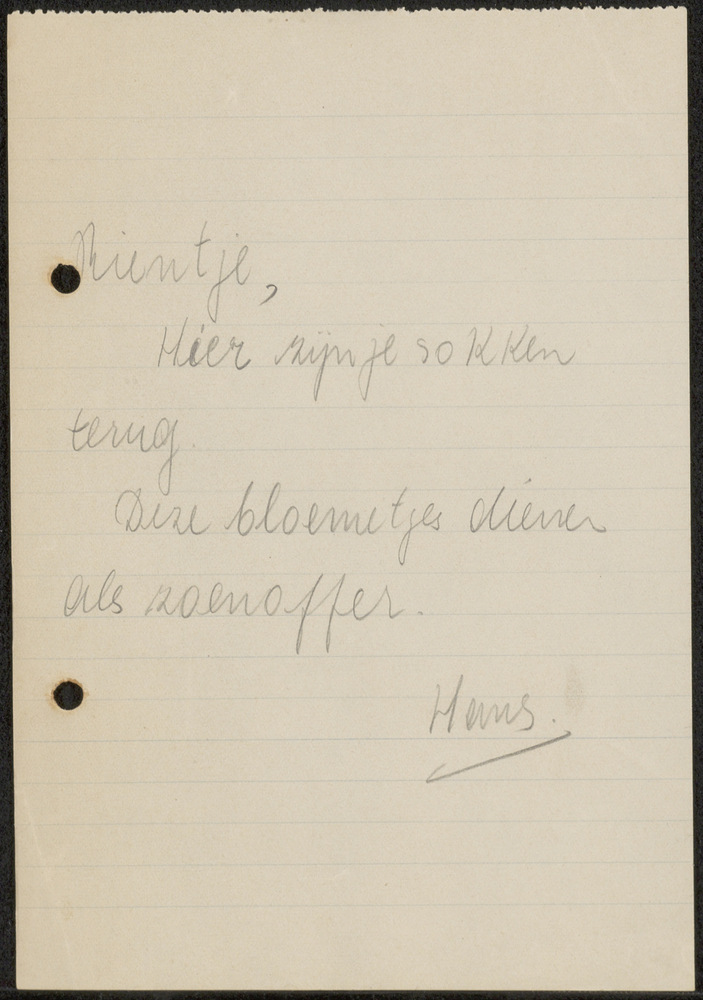 Rientje,
Hier zijn je sokken
terug.
Deze bloemetjes dienen
als zoenoffer.
Hans.